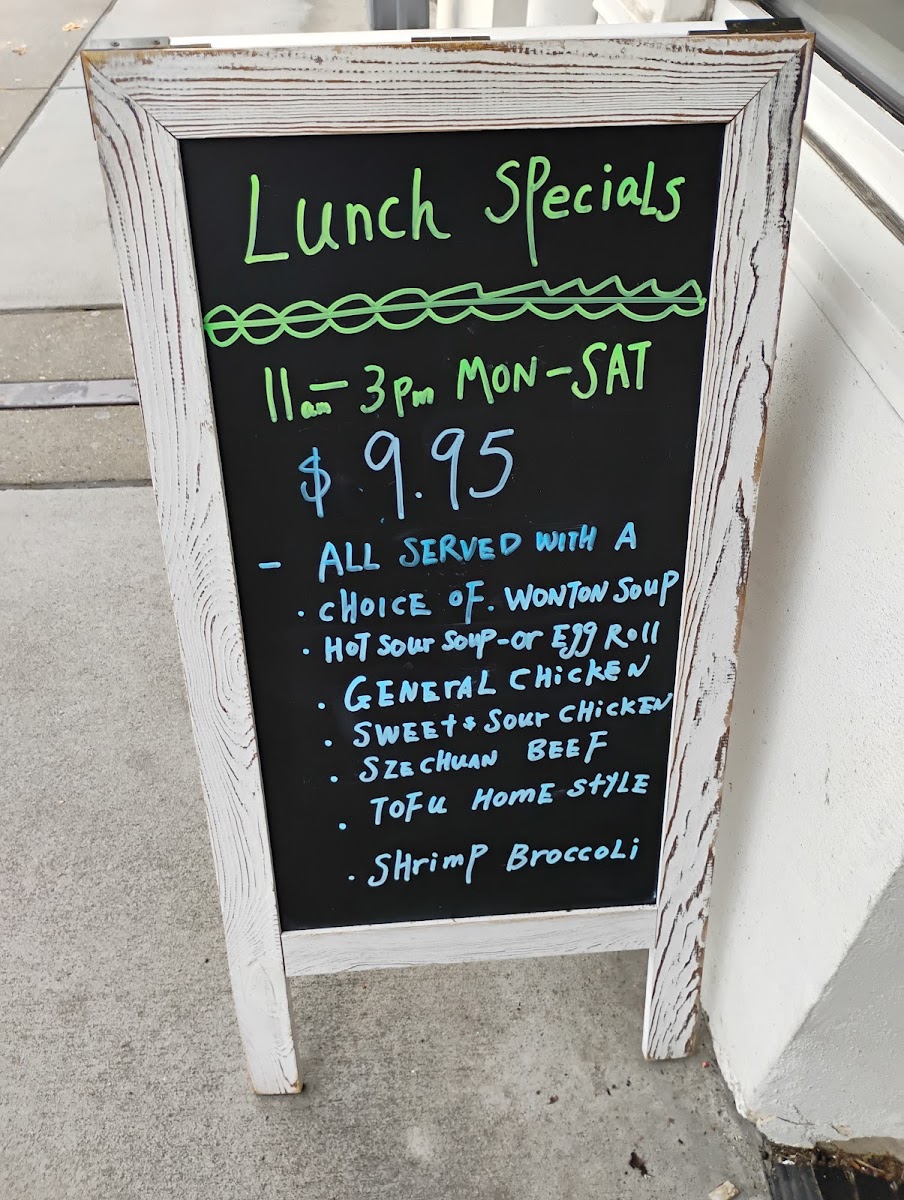 Lunch Specials
11am-3pm MON-SAT
$9.95
- ALL SERVED WITH A
· CHOICE OF. WONTON SOUP
· HOT SOUR SOUP-Or Egg Roll
· GENERAL CHICKEN
· SWEET & SOUR CHICKEN
· SZECHUAN BEEF
· TOFU HOME STYLE
· SHrimp BroccoLi